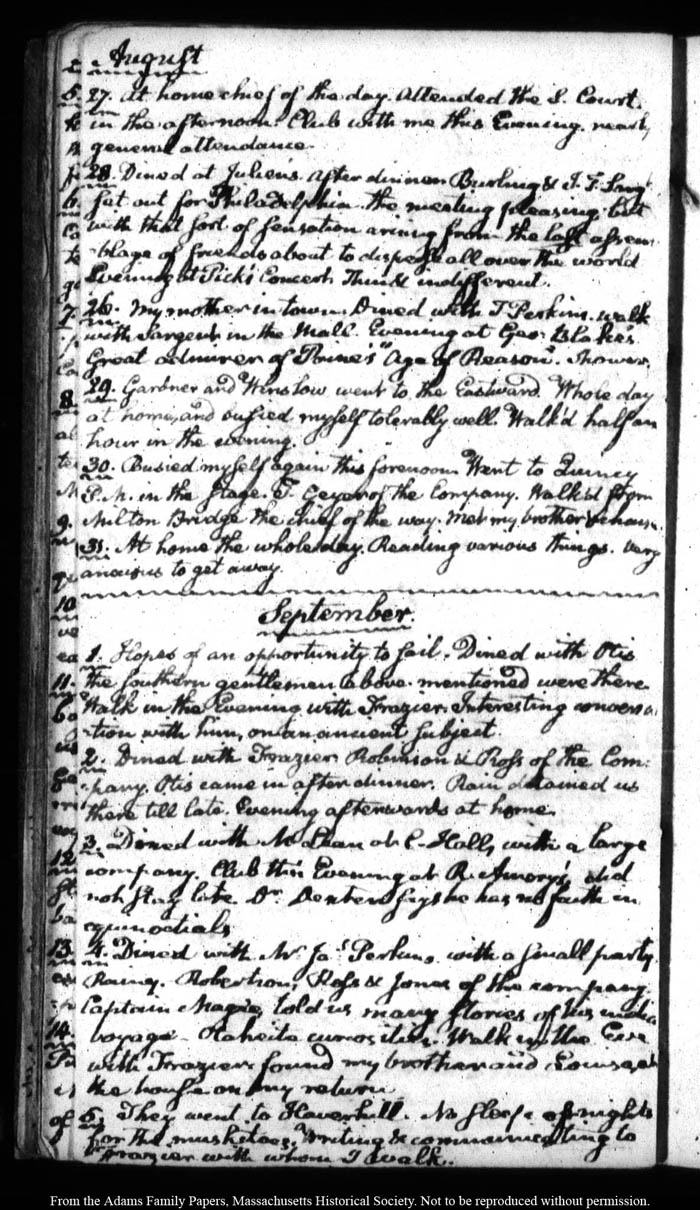 August
27. At home chief of the day. Attended the S. Court.
in the afternoon. Club with me this Evening. nearly
general attendance.
28. Dined at Julien's. After dinner Burling & J. F.
set out for Philadelphia. the meeting pleasing, but
with that sort of sensation arising from the last assem-
-blage of friends about to disperse all over the world
Evening at Pick's Concert. Think indifferent.
26. My mother in town. Dined with T Perkins. walk
with Sargent in the Mall. Evening at Geo: Blake's.
Great admirer of Paine's "Age of Reason".
29. Gardner and Winslow went to the Eastward. Whole day
at home, and busied myself tolerably well. Walk'd half an
hour in the evening.
30. Busied myself again this forenoon. Went to Quincy
P.M. in the Stage. of the Company. Walk'd from
Milton Bridge the chief of the way. Met my brother
31. At home the whole day. Reading various things. very
anxious to get away.
September.
1. Hopes of an opportunity to sail. Dined with Otis
the southern gentlemen above mentioned were there.
Walk in the Evening with Frazier. Interesting conversa
-tion with him, on an ancient subject.
2. Dined with Frazier. Robinson & Ross of the Com:
-pany. Otis came in after dinner. Rain detained us
there till late. Evening afterwards at home.
3. Dined with McLean at C. Hall, with a large
company. Club this Evening at R. Amory's, did
not stay late. Dr. Dexter says he has no faith in
equinoctials
4. Dined with Mr. Jas. Perkins, with a small party.
Rainy. Robertson, Ross & Jones of the company.
Captain Magee, told us many stories of his
voyage - Otaheite curiosities. Walk in the Eve
with Frazier, found my brother and Louisa at
the house on my return
5. They went to Haverhill. No sleep of nights
for the musketoes. Writing & communicating to
Frazier with whom I walk.
From the Adams Family Papers, Massachusetts Historical Society. Not to be reproduced without permission.